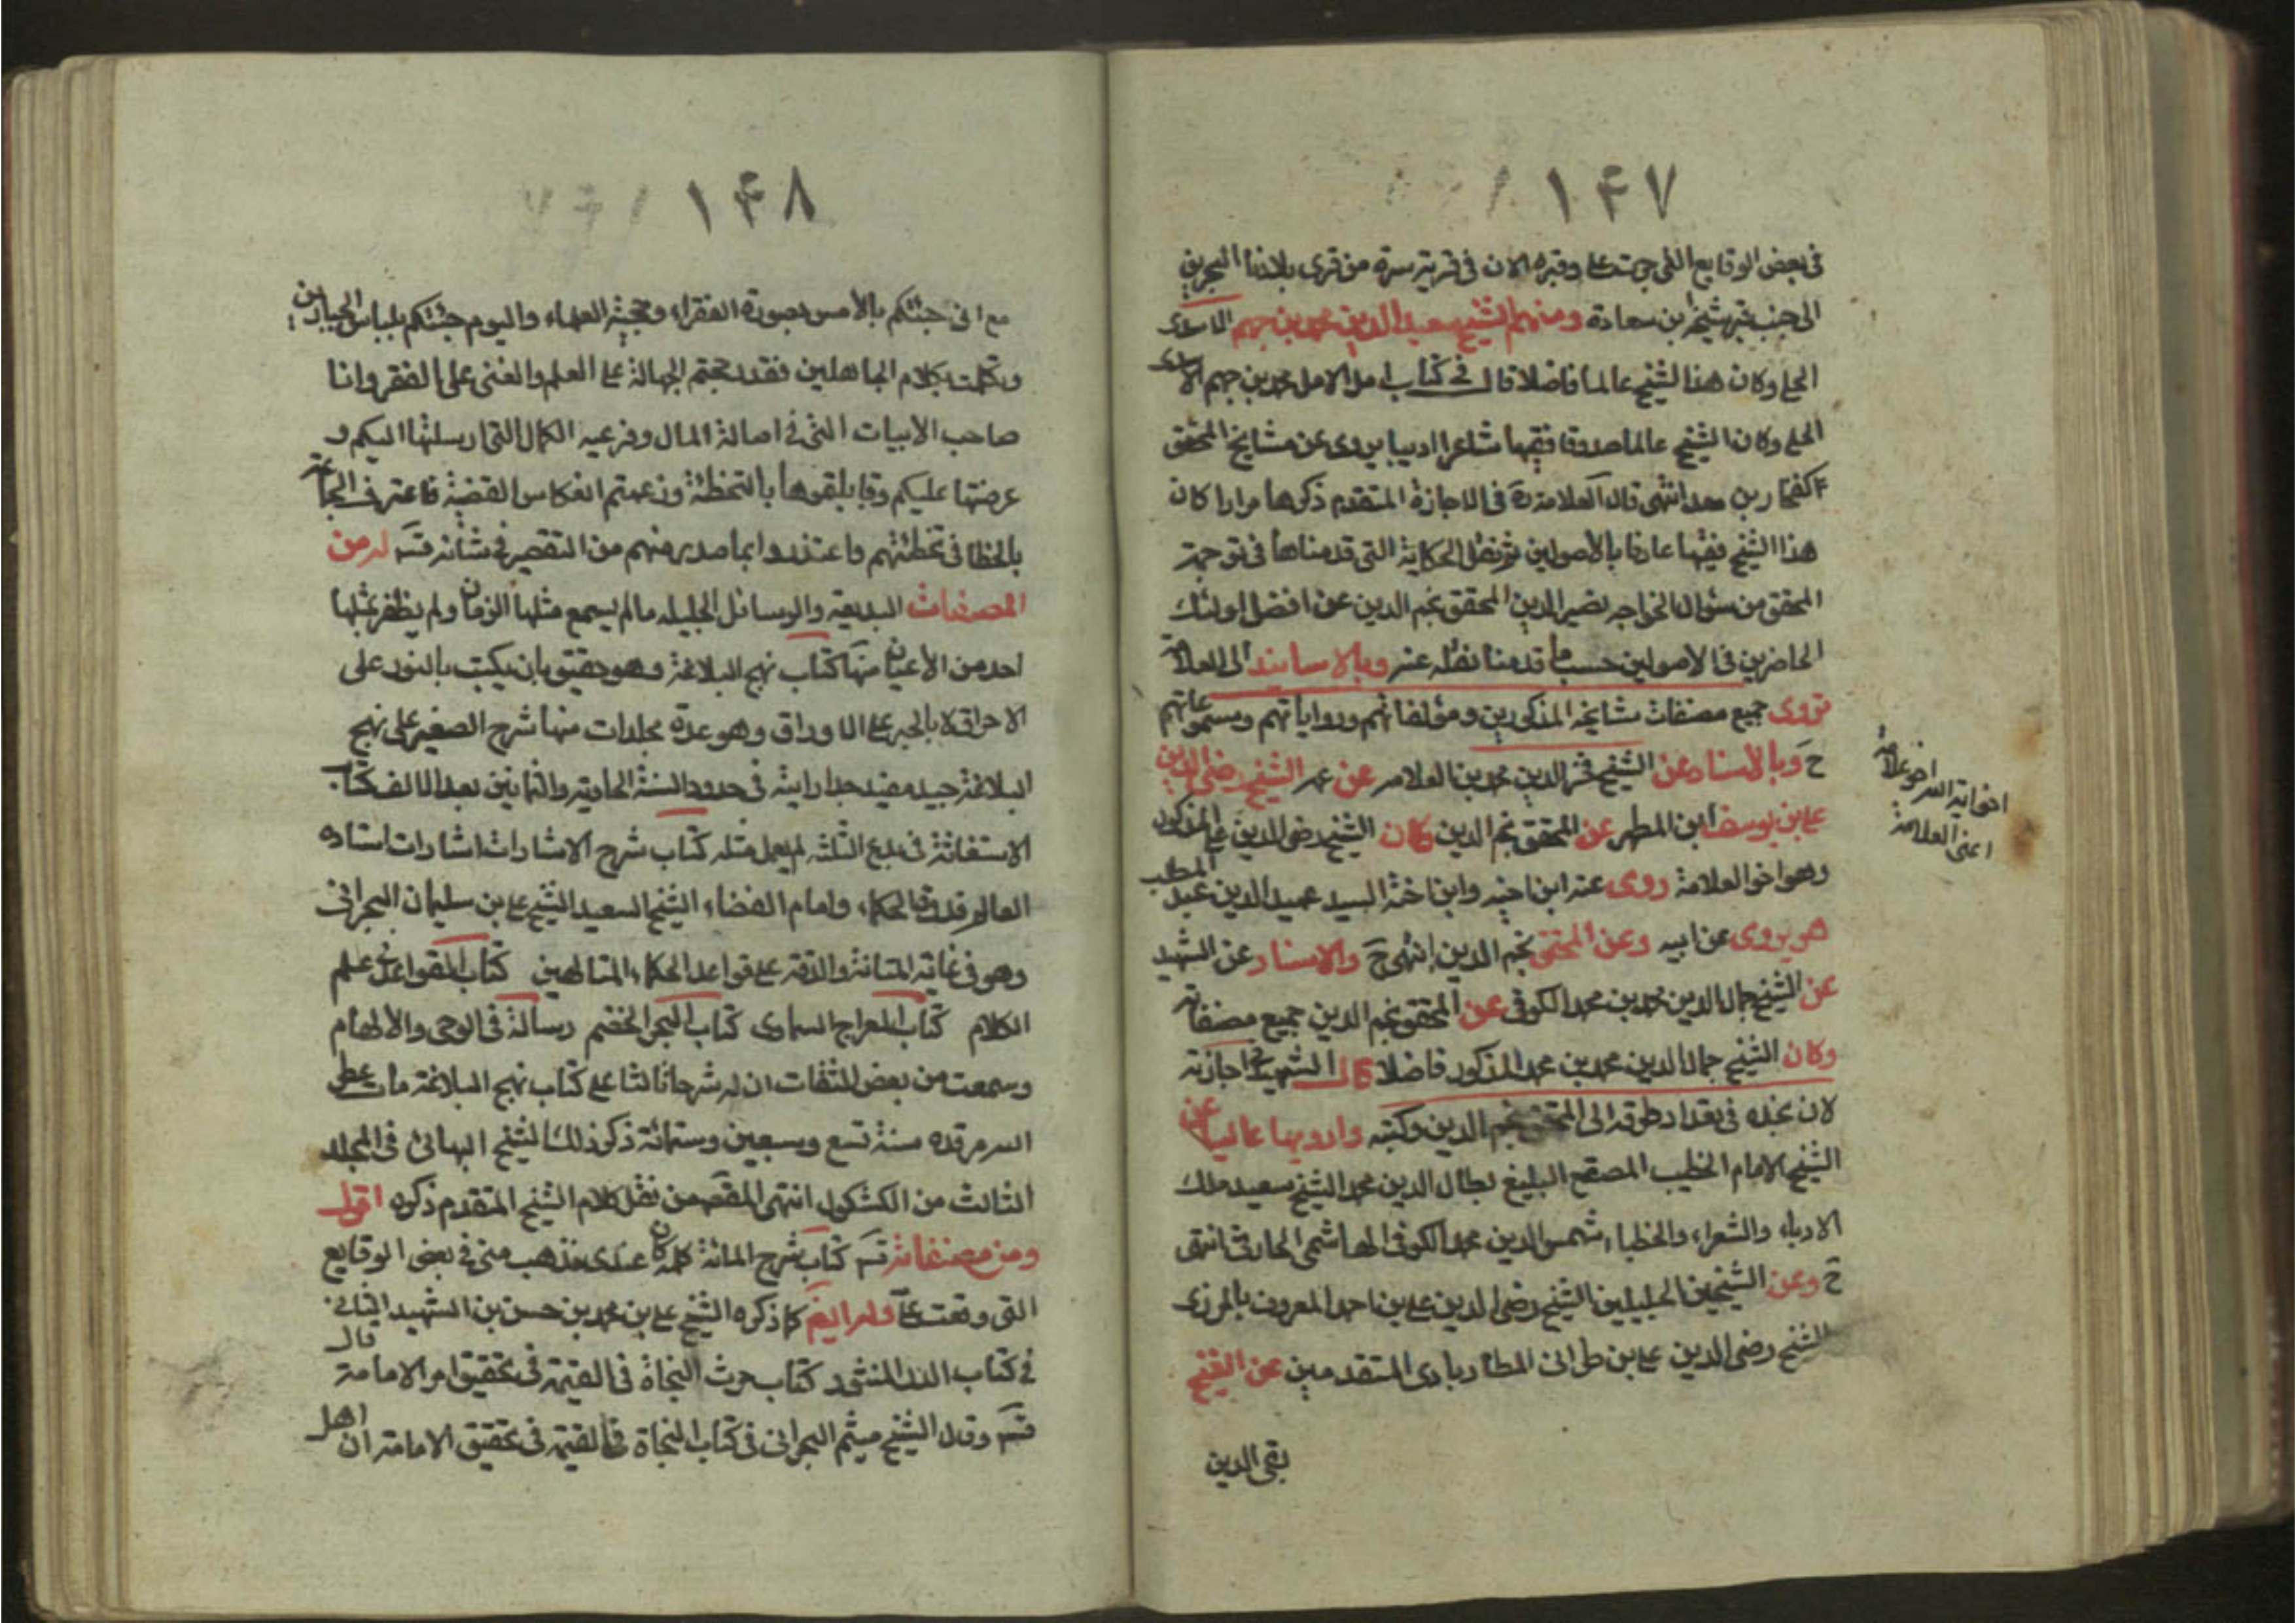 ١٤٧
في بعض الوقايع التي جرت علي وقبره الان في قرية سترة من قرى بلادنا البحرين
الى جنب قبر شيخه ابن سعادة ومنهم الشيخ سعيد الدين محمد بن جهم الاسدى
الحلي وكان هذا الشيخ عالما فاضلا قال في كتاب امل الامل محمد بن جهم الاسدى
الحلي وكان الشيخ عالما صدوقا فقيها شاعرا اديبا يروى عن مشايخ المحقق
كفخار بن معد انتهى قال العلامة ره في الاجازة المتقدم ذكرها مرارا كان
هذا الشيخ فقيها عارفا بالاصولين ثم نقل الحكاية التي قدمناها في ترجمة
المحقق من سؤال الخواجه نصير الدين المحقق نجم الدين عن افضل اولئك
الحاضرين في الاصولين حسب ما قدمنا نقله عنه وبالاسانيد الى العلامة
نروى جميع مصنفات مشايخه المذكورين ومؤلفاتهم ورواياتهم ومسموعاتهم
ح وبالاسناد عن الشيخ فخر الدين محمد بن العلامه عن عمه الشيخ رضى الدين
علي بن يوسف ابن المطهر عن المحقق نجم الدين كان الشيخ رضى الدين علي المذكور
وهو اخو العلامة روى عنه ابن اخيه وابن اخته السيد عميد الدين عبد المطلب
هو يروى عن ابيه وعن المحقق نجم الدين انتهى ح والاسناد عن الشهيد
عن الشيخ جمال الدين محمد بن محمد الكوفي عن المحقق نجم الدين جميع مصنفاته
وكان الشيخ جمال الدين محمد بن محمد المذكور فاضلا قال الشهيد في اجازته
لان نجده في بغداد طرقه الى المحقق نجم الدين وكتبه وارويها عاليا عن
الشيخ الامام الخطيب المصقع البليغ لجلال الدين محمد الشيخ سعيد ملك
الادباء والشعراء والخطباء شمس الدين محمد الكوفي الهاشمي الحارثي انتهى
ح وعن الشيخين الجليلين الشيخ رضى الدين علي بن احمد المعروف بالمزيدى
الشيخ رضى الدين علي بن طراني المطاربادى المتقدمين عن الشيخ
تقى الدين
اعنى العلامة
١٤٨
مع انى جئتكم بالامس بصورة الفقراء وتحية العلماء واليوم جئتكم بلباس الجبارين
وتكلمت بكلام الجاهلين فقد رجحتم الجهالة على العلم والغنى على الفقر وانا
صاحب الابيات التي في اصالة المال وفرعيه الكمال التي ارسلتها اليكم و
عرضتها عليكم وقابلتموها بالتخطئة وزعمتم انعكاس القضية فاعترف الجماعة
بالخطا في تخطئتهم واعتذروا بما صدر منهم من التقصير في شانه قده له من
المصنفات البديعه والرسائل الجليله ما لم يسمع مثلها الزمان ولم يظفر بمثلها
احد من الاعيان منها كتاب نهج البلاغة وهو حقيق بان يكتب بالنور على
الاحداق لا بالحبر على الاوراق وهو عدة مجلدات منها شرح الصغير على نهج
البلاغة جيد مفيد جدا رايته في حدود السنة الحادية والثمانين بعد الالف كتاب
الاستغاثة في بدع الثلثه لم يعمل مثله كتاب شرح الاشارات اشارات استاده
العالم قدوة الحكماء وامام الفضلاء الشيخ السعيد الشيخ علي بن سليمان البحرانى
وهو في غاية المتانة والدقة على قواعد الحكماء المتالهين كتاب القواعد في علم
الكلام كتاب المعراج السماوى كتاب البحر الخضم رسالة في الوحى والالهام
وسمعت من بعض الثقات ان له شرحا ثالثا على كتاب نهج البلاغة مات عطر
الله مرقده سنة تسع وسبعين وستمائة ذكر ذلك الشيخ البهائى في المجلد
الثالث من الكشكول انتهى المقصود من نقل كلام الشيخ المتقدم ذكره اقول
ومن مصنفاته قده كتاب شرح المائة كلمه كان عندى فذهب منى في بعض الوقايع
التى وقعت علي وله ايضم كما ذكره الشيخ علي بن محمد بن حسن بن الشهيد الثانى
في كتاب الدر المنثور كتاب النجاة في القيمة في تحقيق امر الامامة قال
قده وقال الشيخ ميثم البحرانى في كتاب النجاة في القيمة في تحقيق الامامة ان اهل